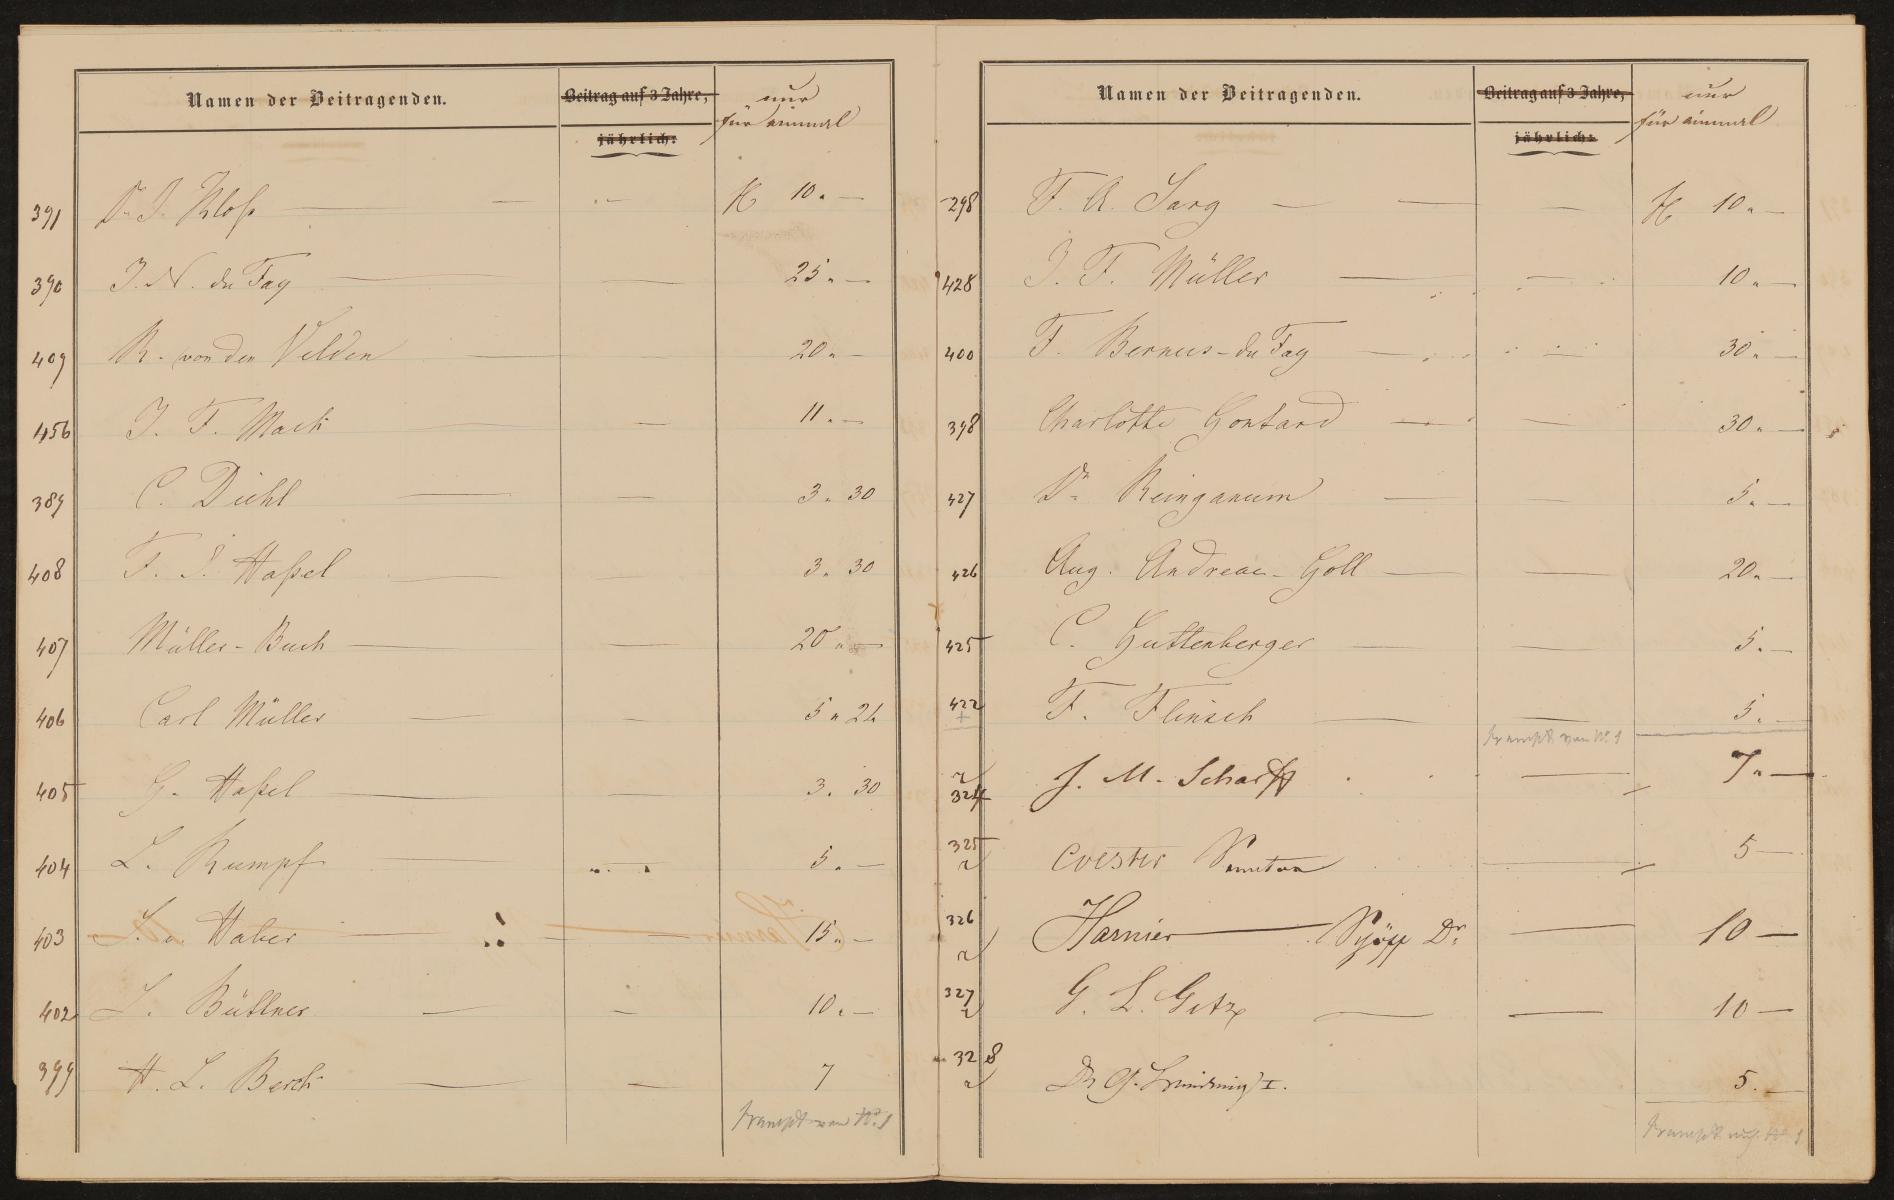 Namen der Beitragenden. Beitrag auf 3 Jahre, jährlich: nur für einmal
391 Dr. J. Kloß fl 10 . —
390 J. N. du Fay 25 . —
409 R. von den Velden 20 . —
456 J. F. Mack 11 . —
389 C. Diehl 3 . 30
408 F. J. Haßel 3 . 30
407 Müller-Buch 20 . —
406 Carl Müller 5 . 24
405 G. Haßel 3 . 30
404 L. Rumpf 5 . —
403 L. v. Haber 15 . —
402 J. Büttner 10 . —
399 H. L. Berck 7
von No. 1
Namen der Beitragenden. Beitrag auf 3 Jahre, jährlich: nur für einmal
298 F. A. Sarg fl 10 . —
428 J. F. Müller 10 . —
400 F. Bernus-du Fay 30 . —
398 Charlotte Gontard 30 . —
427 Dr. Reinganum 5 . —
426 Aug. Andreae-Goll 20 . —
425 C. Guttenberger 5 . —
422 F. Flinsch 5 . —
von No. 1
324 J. M. Scharff 7 . —
325 Coester Senator 5 —
326 Harnier Schöff Dr. 10 —
327 G. L. Getz 10 —
328 Dr. I. 5 . —
No. 1